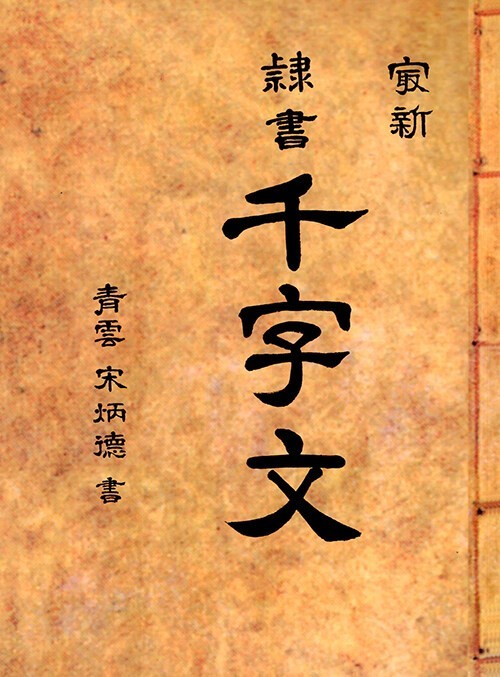 最新
隷書
千字文
青雲 宋炳德 書